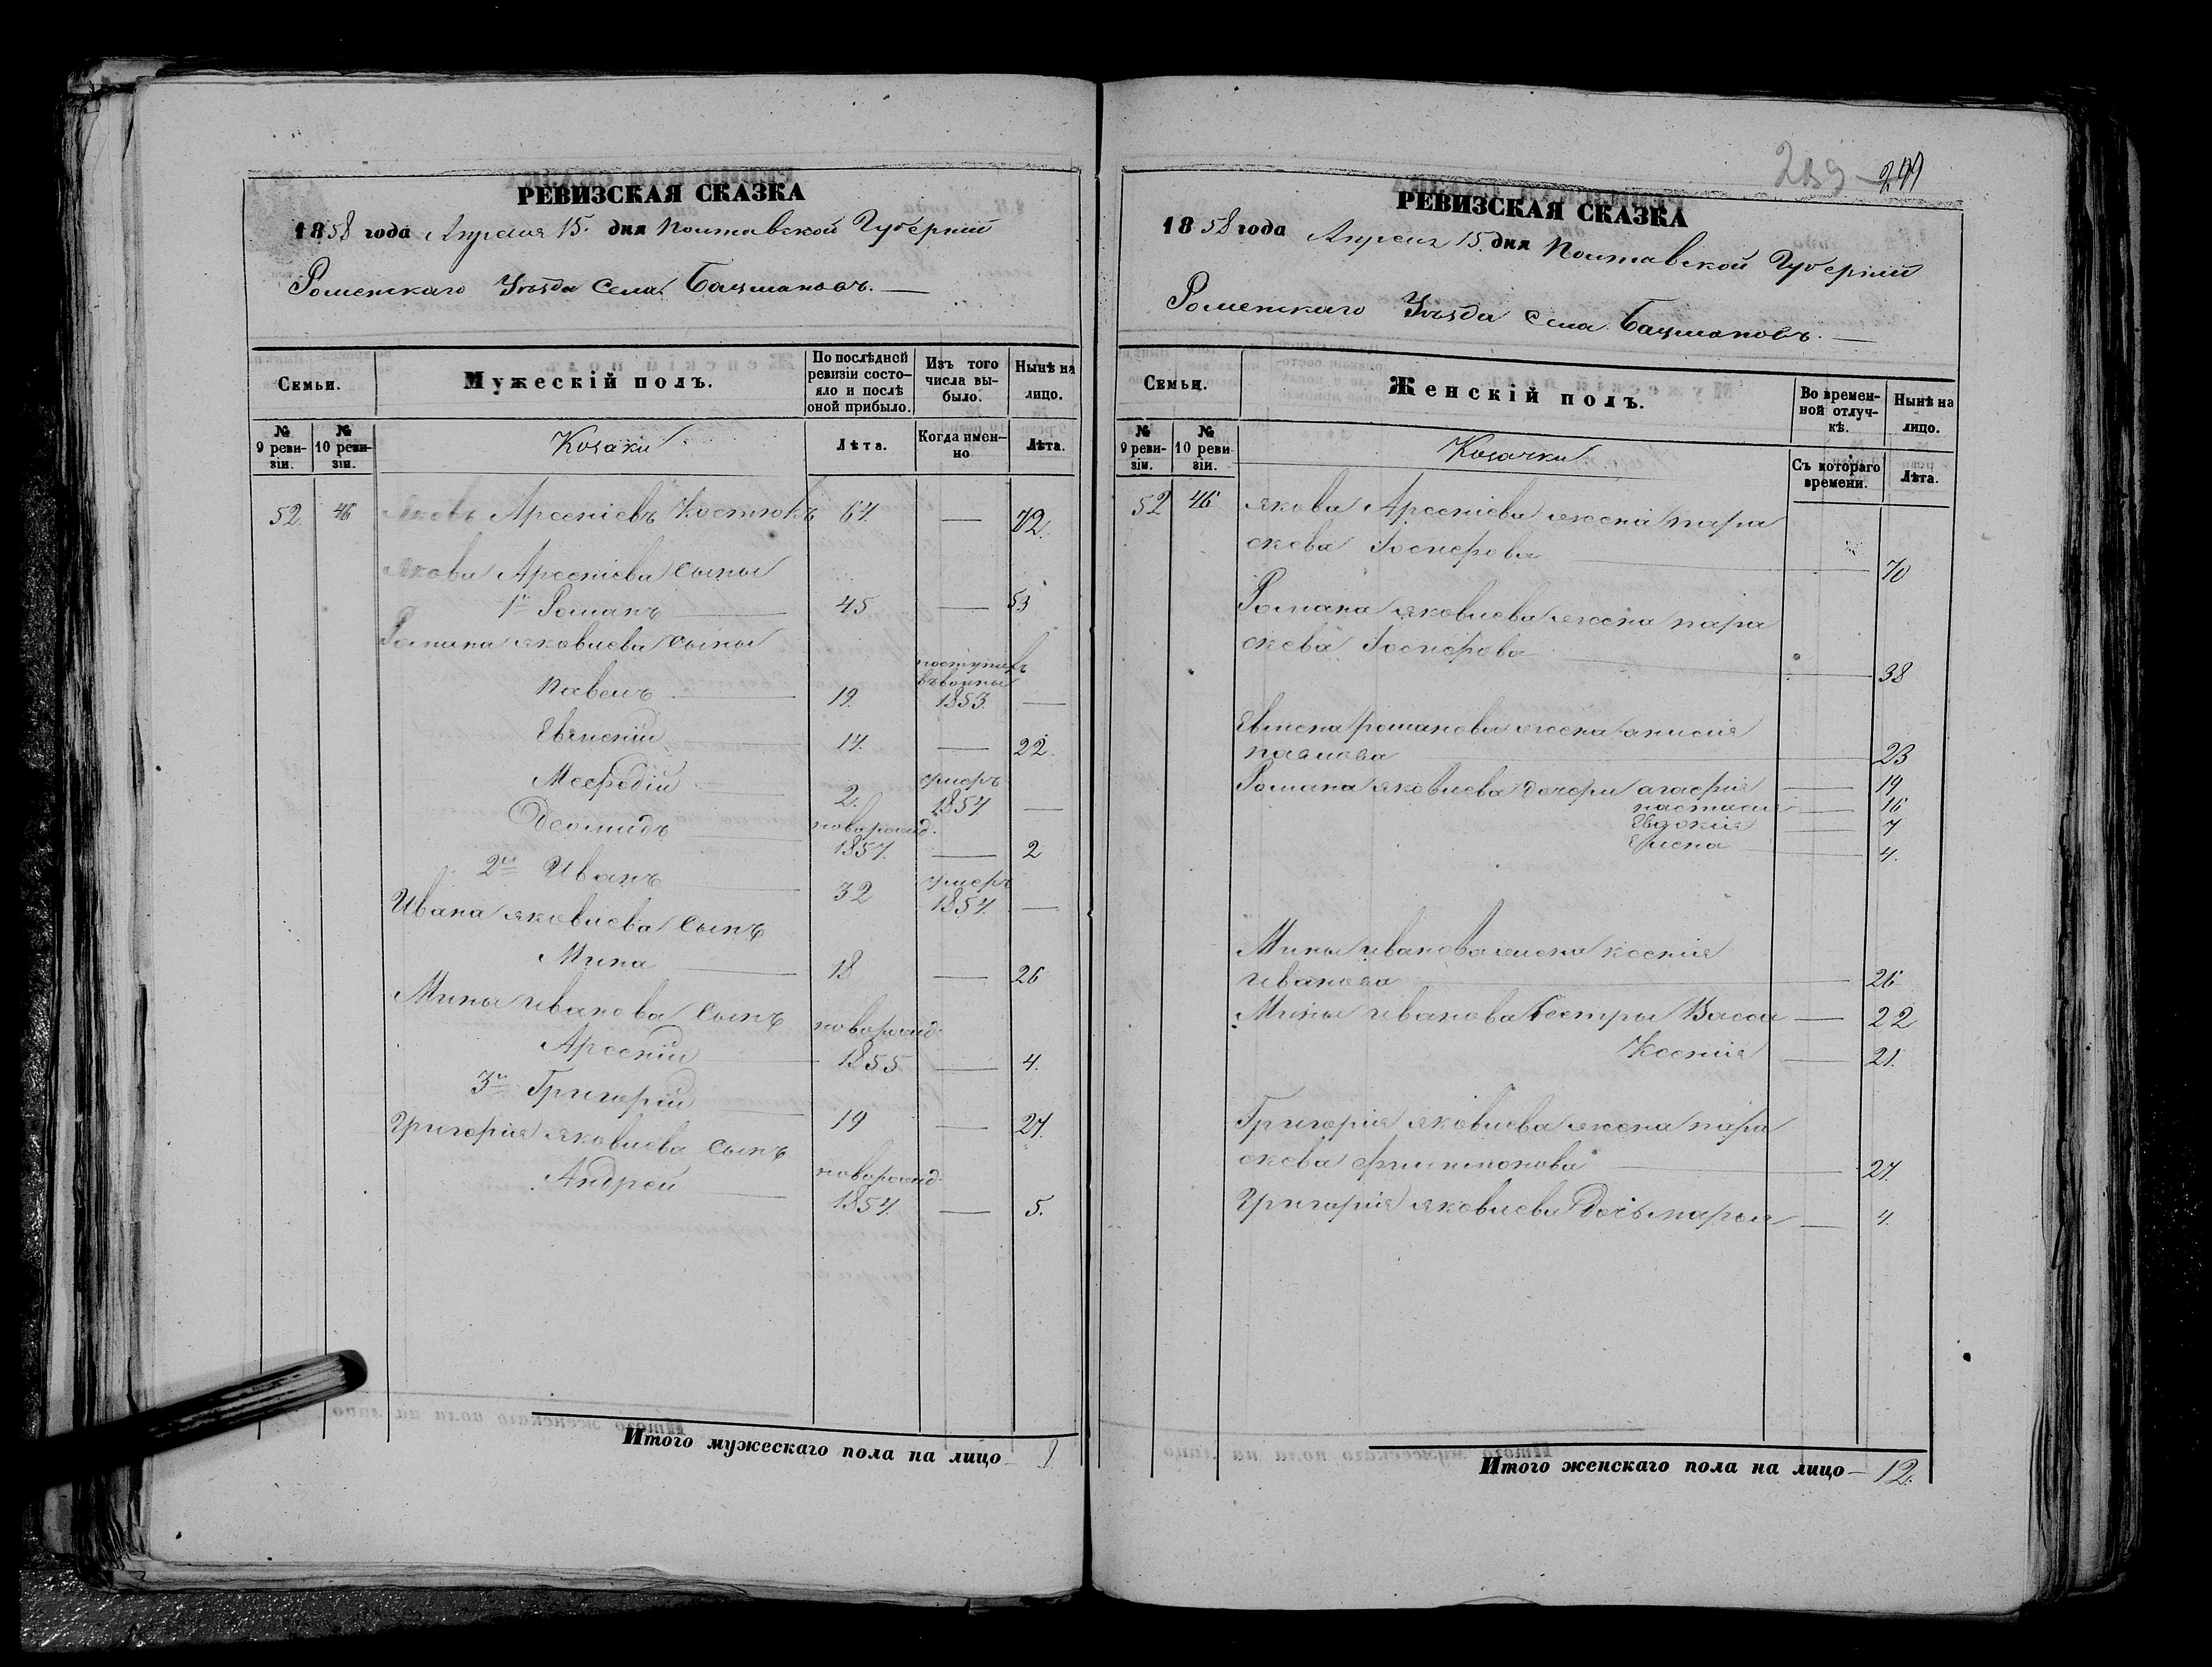 РЕВИЗСКАЯ СКАЗКА
1858 года Апреля 15. дня Полтавской Губерніи
Роменскаго Уѣзда Села Бацмановъ.
Семьи.
Мужескій полъ.
По послѣдней ревизіи состояло и послѣ оной прибыло.
Изъ того числа выбыло.
Нынѣ на лицо.
№ 9 ревизіи.
№ 10 ревизіи.
Козаки
Лѣта.
Когда именно
Лѣта.
52 46 Яковъ Арсеніевъ Костюкъ 64. — 72.
Якова Арсеніева сыны
1й Романъ 45 — 53
Романа Яковлева сыны
Павелъ 19. поступилъ 1853. —
Евменій 14. — 22.
Мефодій 2. умеръ 1854. —
Деомидъ новорожд. 1857. — 2
2й Иванъ 32 умеръ 1854. —
Ивана Яковлева сынъ
Мина 18 — 26
Мины Иванова сынъ
Арсеній новорожд. 1855 — 4.
3й Григорій 19 — 27.
Григорія Яковлева сынъ
Андрей новорожд. 1854. — 5.
Итого мужескаго пола на лицо 9
289 291
РЕВИЗСКАЯ СКАЗКА
1858 года Апреля 15. дня Полтавской Губерніи
Роменскаго Уѣзда Села Бацмановъ.
Семьи.
Женскій полъ.
Во временной отлучкѣ.
Нынѣ на лицо.
№ 9 ревизіи.
№ 10 ревизіи.
Козачки
Съ котораго времени.
Лѣта.
52 46 Якова Арсеніева жена Пара
скева Іосифова 70
Романа Яковлева жена Пара
скева Іосифова 38
Евмена Романова жена Анисія
Павлова 23
Романа Яковлева дочери Агафія — 19
Настасія — 16
Евдокія — 7
Елена 4.
Мины Иванова жена Ксенія
Иванова 26
Мины Иванова сестры Васса — 22
Ксенія — 21.
Григорія Яковлева жена Пара
скева Филимонова 27.
Григорія Яковлева дочь Марья — 4.
Итого женскаго пола на лицо — 12.